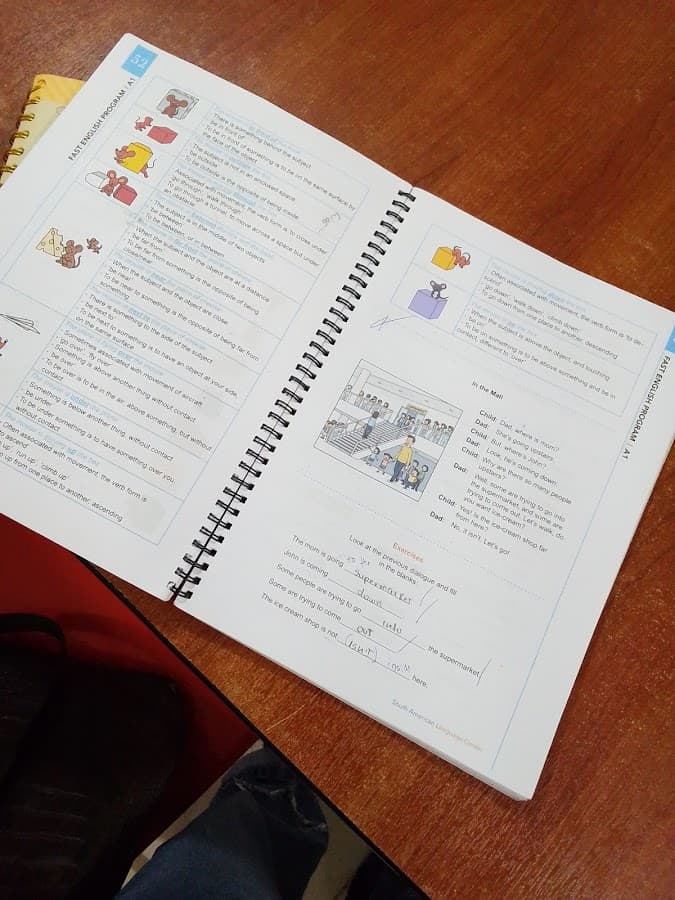 52
FAST ENGLISH PROGRAM / A1
There is something behind the subject.
"be in front of"
To be in front of something is to be on the same surface by
the face of the object
The subject is not in an enclosed space.
"be outside"
To be outside is the opposite of being inside.
Associated with movement, the verb form is to cross under
"go through", "walk through"
To go through a tunnel: to move across a space but under
an obstacle.
The subject is in the middle of two objects.
"be between"
To be between, or in between
When the subject and the object are at a distance
"be far from"
To be far from something is the opposite of being
close/near.
When the subject and the object are close.
"be near"
To be near to something is the opposite of being far from
something
There is something to the side of the subject
"be next to"
To be next to something is to have an object at your side,
on the same surface
Sometimes associated with movement of aircraft.
"go over", "fly over"
Something is above another thing without contact
"be over"
To be over is to be in the air above something, but without
contact
Something is below another thing, without contact
"be under"
To be under something is to have something over you
Often associated with movement, the verb form is
to ascend
up", "run up", "climb up"
up from one place to another, ascending
Often associated with movement, the verb form is "to de-
scend"
"go down", "walk down", "climb down"
To go down from one place to another, descending
When the subject is above the object, and touching
"be on"
To be on something is to be above something and be in
contact, different to "over"
FAST ENGLISH PROGRAM / A1
In the Mall
Child: Dad, where is mom?
Dad: She's going upstairs.
Child: But, where's John?
Dad: Look, he's coming down.
Child: Why are there so many people
upstairs?
Dad: Well, some are trying to go into
the supermarket, and some are
trying to come out. Let's walk, do
you want ice-cream?
Child: Yes! Is the ice-cream shop far
from here?
Dad: No, it isn't. Let's go!
Exercises
Look at the previous dialogue and fill
in the blanks
The mom is going supermarket
John is coming down
Some people are trying to go into the supermarket
Some are trying to come out
The ice cream shop is not (isn't) here.
South American Language Center